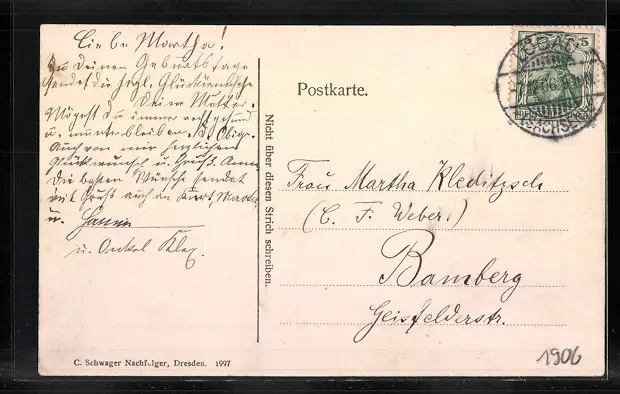 Liebe Martha!
Zu Deinen Geburtstage
sendet die herzl. Glückwünsche
Deine Mutter.
Mögest du immer recht gesund
u. munter bleiben. D. Obige.
Auch von mir herzlichen
Glückwunsch u. Gruß. Anna
Die besten Wünsche sendet
mit Gruß auch an Kurt Martha
u.
u. Onkel Alex.
C. Schwager Nachfolger, Dresden. 1997
Nicht über diesen Strich schreiben.
Postkarte.
5
LÖBAU
06
(SACHSEN)
Frau Martha Kleditzsch
(C. F. Weber.)
Bamberg
Geisfelderstr.
1906